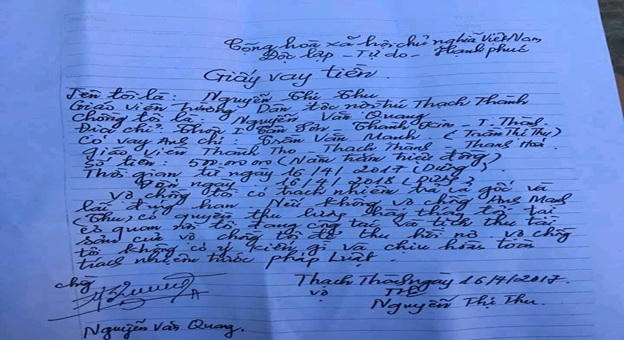 Cộng hoà xã hội chủ nghĩa Việt Nam
Độc lập - Tự do - Hạnh phúc
Giấy vay tiền.
Tên tôi là: Nguyễn Thị Thu
Giáo viên trường: Dân tộc nội trú Thạch Thành
Chồng tôi là: Nguyễn Văn Quang
Địa chỉ: Thôn I - - T. Thành
Có vay Anh chị: Trần Văn Mạnh (Trần Thị Thu)
giáo viên Thành Thọ - Thạch Thành Thanh Hoá.
Số tiền: 500.000.000 (Năm trăm triệu đồng)
Thời gian từ ngày 16/4/2017 (Dương)
Đến ngày 16/4/2018 (Dương)
Vợ chồng tôi có trách nhiệm trả cả gốc và
lãi đúng hạn Nếu không vợ chồng Anh Mạnh
Thu, có quyền thu lương hàng tháng tôi tại
cơ quan nơi tôi đang công tác và tịch thu tài
sản của vợ chồng tôi để thu hồi nợ vợ chồng
tôi không có ý kiến gì và chịu hoàn toàn
trách nhiệm trước pháp Luật.
Thạch Thành ngày 16/4/2017.
chồng
vợ
Thu
Nguyễn Thị Thu.
Nguyễn Văn Quang.